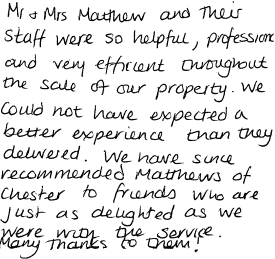 Mr & Mrs Matthew and Their
Staff were so helpful, profession
and very efficient throughout
the sale of our property. We
could not have expected a
better experience than they
delivered. We have since
recommended Matthews of
Chester to friends who are
just as delighted as we
were with the service.
Many Thanks to them!